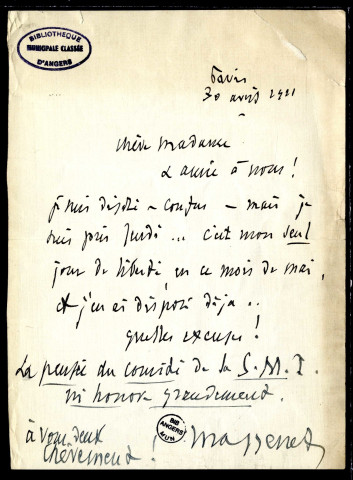 BIBLIOTHEQUE
MUNICIPALE CLASSÉE
D'ANGERS
Paris
30 avril
chère madame
& amie à nous !
je suis désolé – confus – mais je
suis pris jeudi ... c'est mon seul
jour de liberté en ce mois de mai,
et j'en ai disposé déja ..
quelles excuses !
La pensée du comité de la S. M. I.
m'honore grandement.
à vous deux
chèrement !
BIB
ANGERS
MUN
Massenet